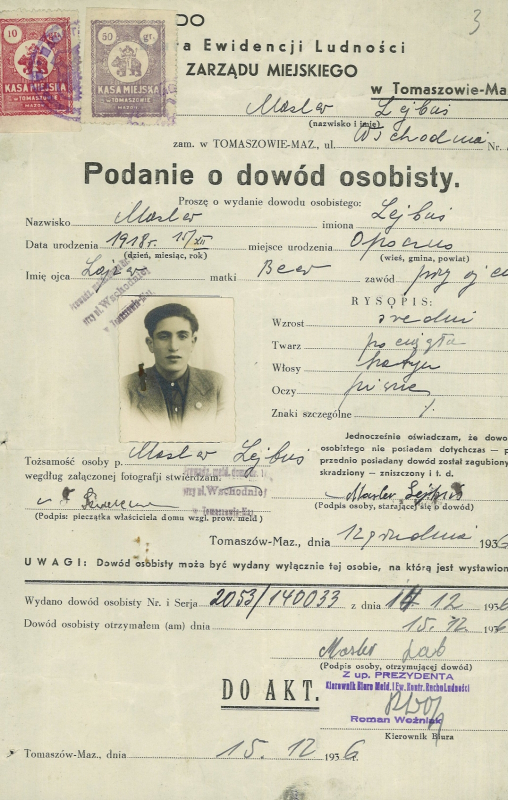 DO
3
ra Ewidencji Ludności
ZARZĄDU MIEJSKIEGO
w Tomaszowie-Ma
10
KASA MIEJSKA
W TOMASZOWIE
MAZOW.
50 gr.
KASA MIEJSKA
W TOMASZOWIE
MAZOW.
Masler Lejbuś
(nazwisko i imię)
zam. w TOMASZOWIE-MAZ., ul. Wschodnia Nr.
Podanie o dowód osobisty.
Proszę o wydanie dowodu osobistego:
Nazwisko Masler imiona Lejbuś
Data urodzenia 1918r. 15/XII miejsce urodzenia Opoczno
(dzień, miesiąc, rok) (wieś, gmina, powiat)
Imię ojca matki zawód przy ojcu
RYSOPIS:
Wzrost średni
Twarz pociągła
Włosy
Oczy piwne
Znaki szczególne
Tożsamość osoby p. Masler Lejbuś
według załączonej fotografji stwierdzam.
(Podpis: pieczątka właściciela domu wzgl. prow. meld.)
Jednocześnie oświadczam, że dowo
osobistego nie posiadam dotychczas — p
przednio posiadany dowód został zagubiony
skradziony — zniszczony i t. d.
Masler Lejbuś
(Podpis osoby, starającej się o dowód)
Tomaszów-Maz., dnia 12 grudnia 1936
UWAGI: Dowód osobisty może być wydany wyłącznie tej osobie, na którą jest wystawion
Wydano dowód osobisty Nr. i Serja 2053/140033 z dnia 14 12 1936
Dowód osobisty otrzymałem (am) dnia 15.12 1936
Masler
(Podpis osoby, otrzymującej dowód)
DO AKT.
Z up. PREZYDENTA
Kierownik Biura Meld. i Ew. Kontr. Ruchu Ludności
Roman Woźniak
Kierownik Biura
Tomaszów-Maz., dnia 15.12 1936r.